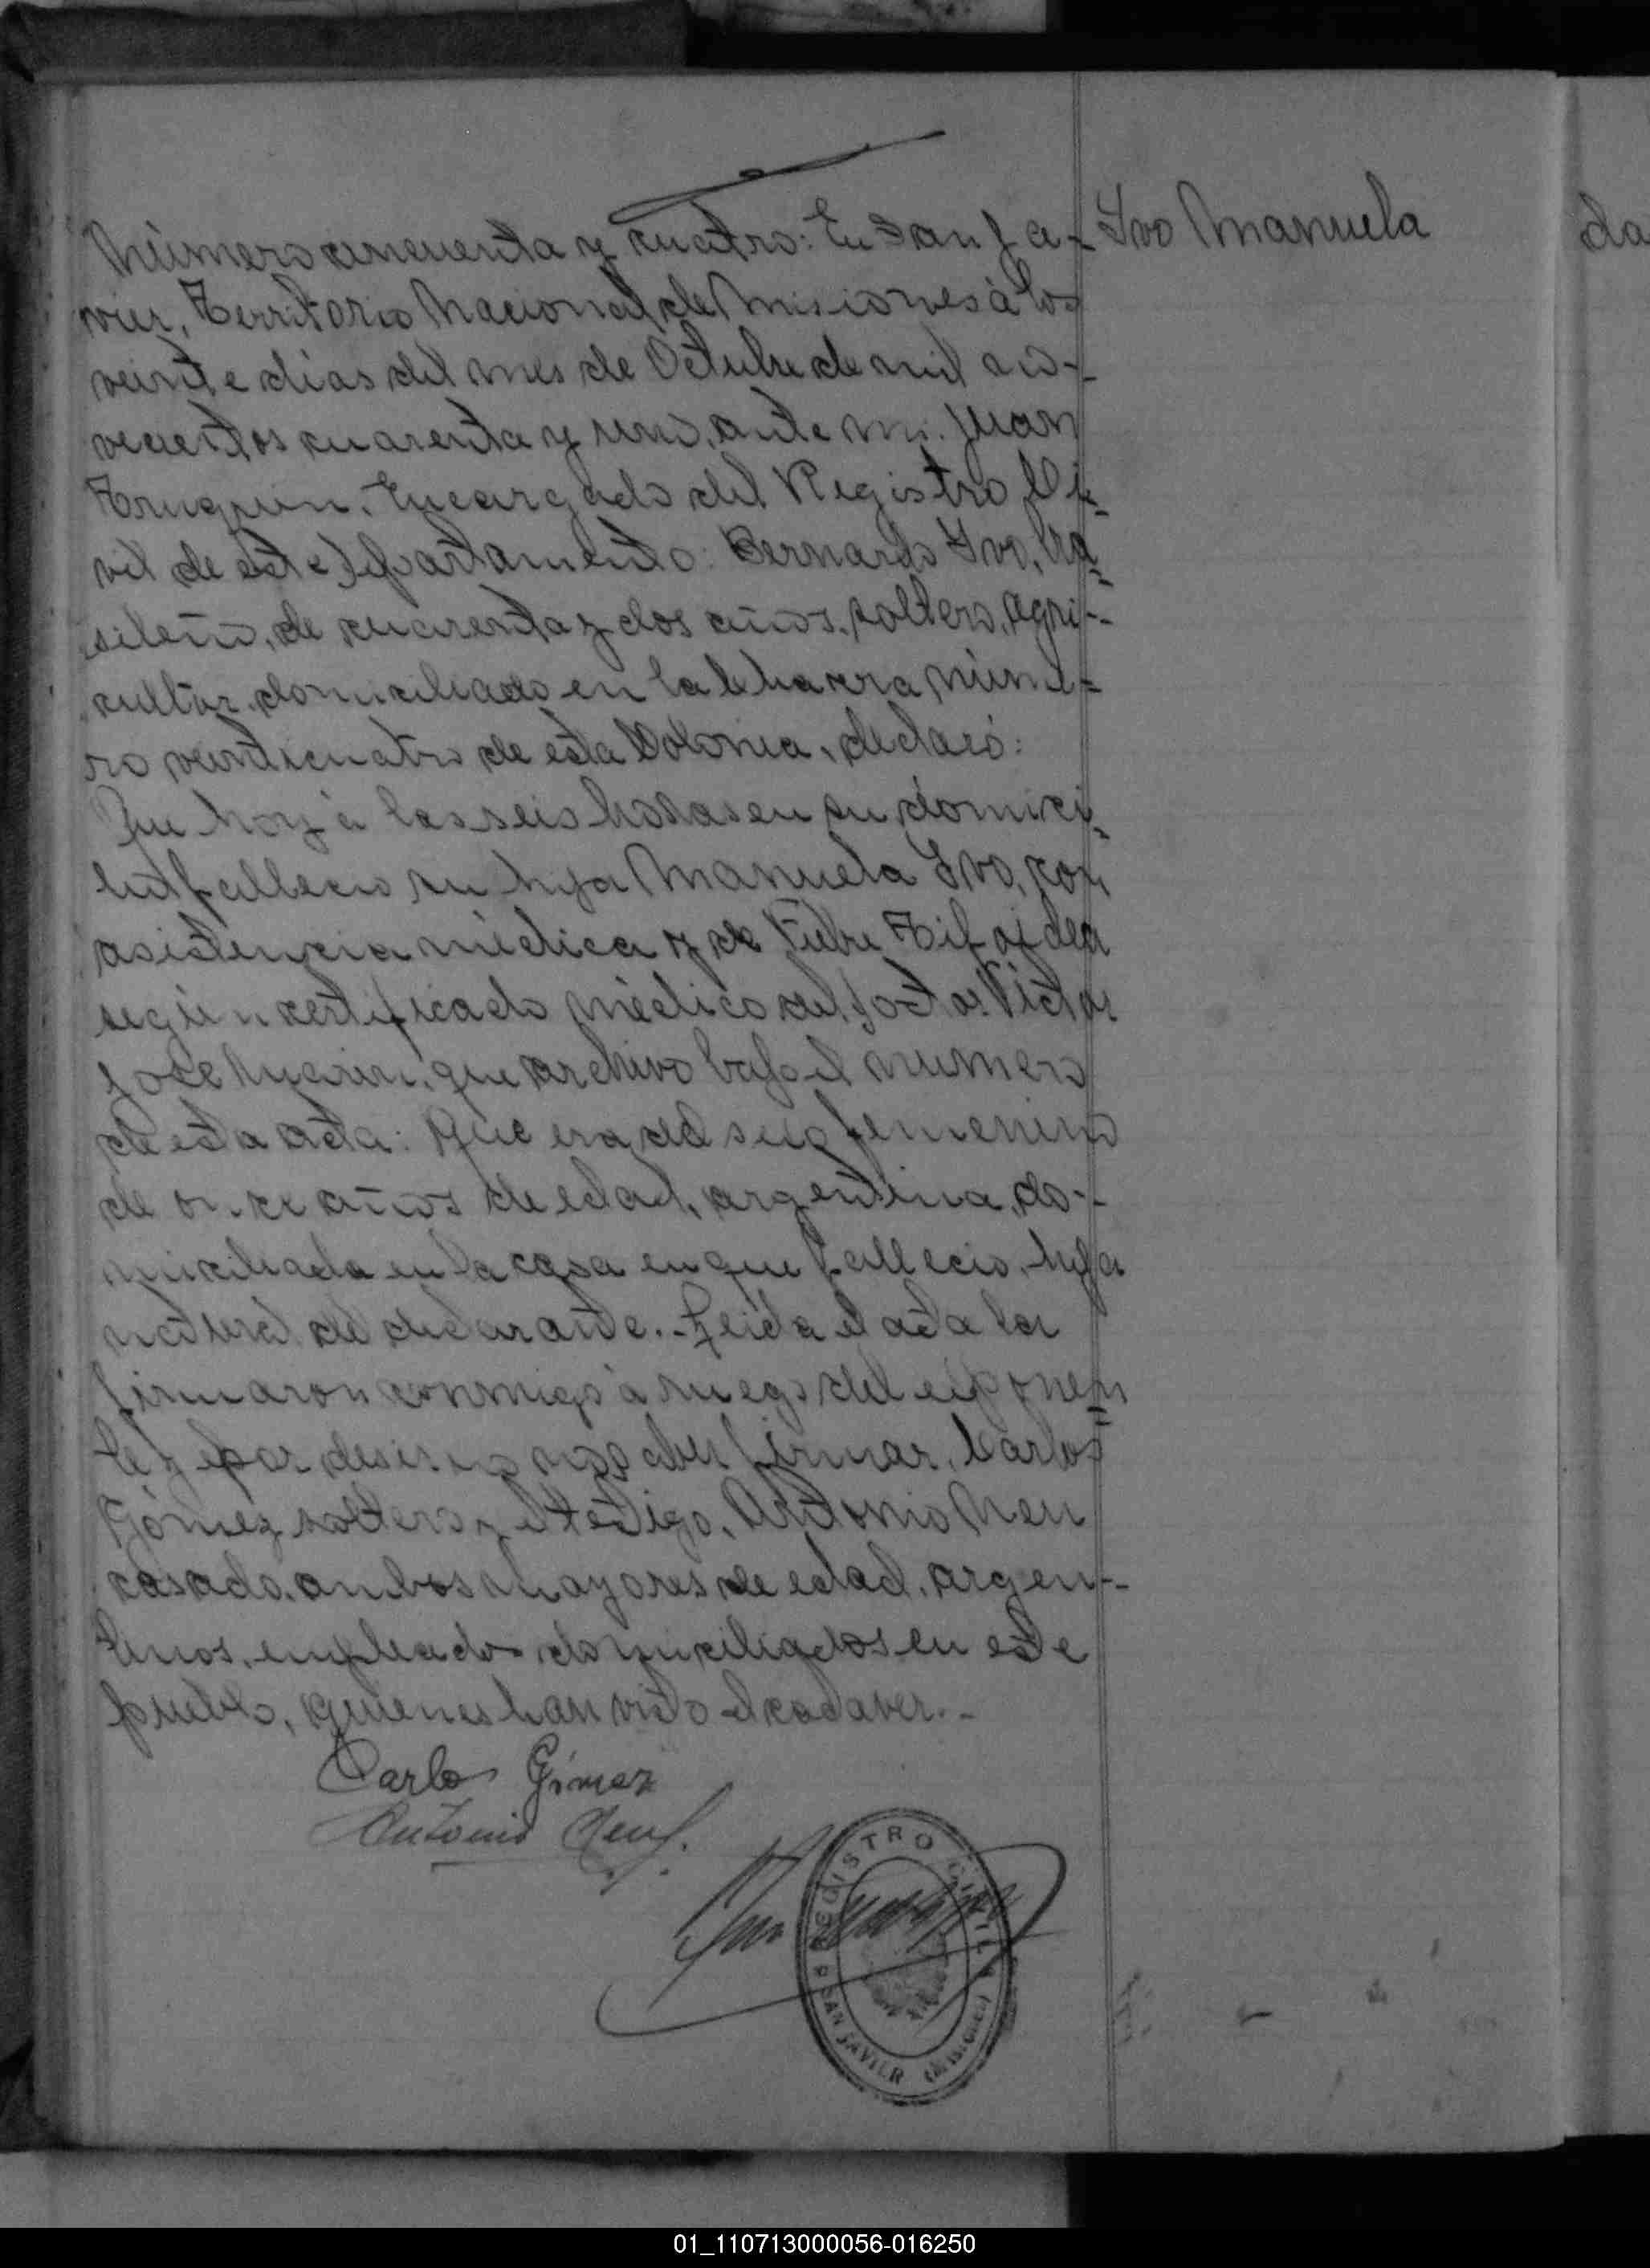 Número cincuenta y cuatro: En San Ja-
vier, Territorio Nacional de Misiones à los
veinte dias del mes de Octubre de mil no-
vecientos cuarenta y uno, ante mi. Juan
Encargado del Registro Ci-
vil de este Departamento: Bernardo Ivo, bra-
sileño, de cuarenta y dos años, soltero, agri-
cultor, domiciliado en la Chacra núme-
ro veinticuatro de esta Colonia, declaró:
Que hoy à las seis horas en su domici-
lio falleció su hija Manuela Ivo, con
asistencia médica y de Fiebre Tifoidea
según certificado médico del Doctor Victor
José que archivo bajo el numero
de esta acta: Que era del sexo femenino
de once años de edad, argentina, do-
miciliada en la casa en que falleció, hija
natural del declarante.- Leida el acta la
firmaron conmigo à ruego del exponen-
te y por decir no saber firmar, Carlos
Gómez soltero y el testigo, Antonio Neu
casado, ambos mayores de edad, argen-
tinos, empleados domiciliados en este
pueblo, quienes han visto el cadaver.-
Carlos Gómez
Antonio Neu
Ivo Manuela
da
REGISTRO CIVIL
SAN JAVIER (Misiones)
01_110713000056-016250